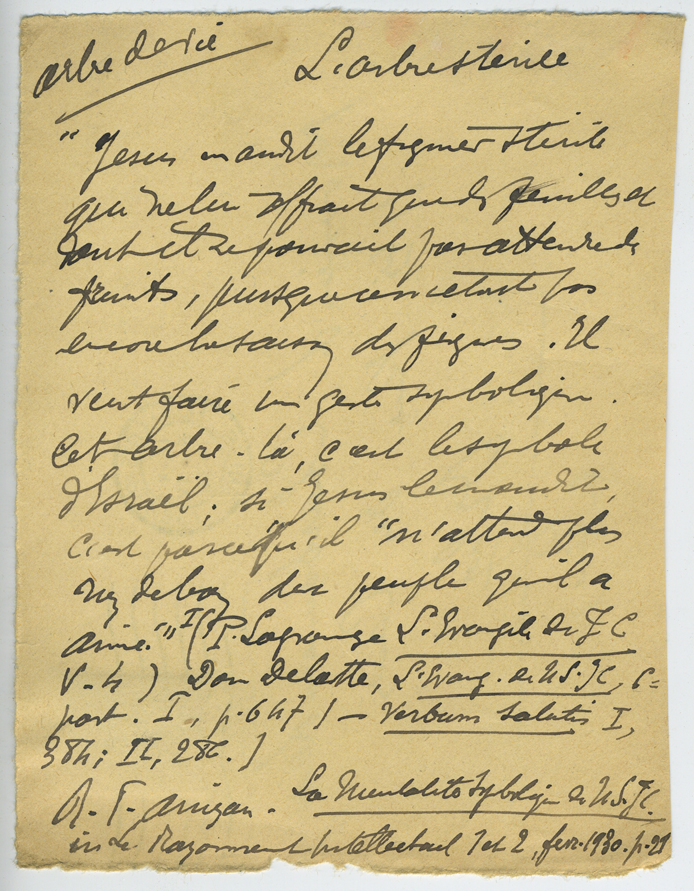 arbre de vie
L'arbre stérile
" Jésus maudit le figuier stérile
qui ne lui offrait que des feuilles et
dont il ne pouvait pas attendre de
fruits, puisque ce n'était pas
encore la saison des figues. Il
veut faire un geste symbolique.
Cet arbre-là, c'est le symbole
d'Israël; si Jésus le maudit,
c'est parce qu'il "n'attend plus
rien de bon du peuple qu'il a
aimé."" I (P. Lagrange L'Evangile de J C
V-4) Dom Delatte, L'Evang. de N.S.JC, 6e
part. I, p. 647] — Verbum Salutis I,
384; II, 286.]
La Mentalité Symbolique de N.S.JC.
in Le Rayonnement Intellectuel 1 et 2, fevr. 1930. p. 21